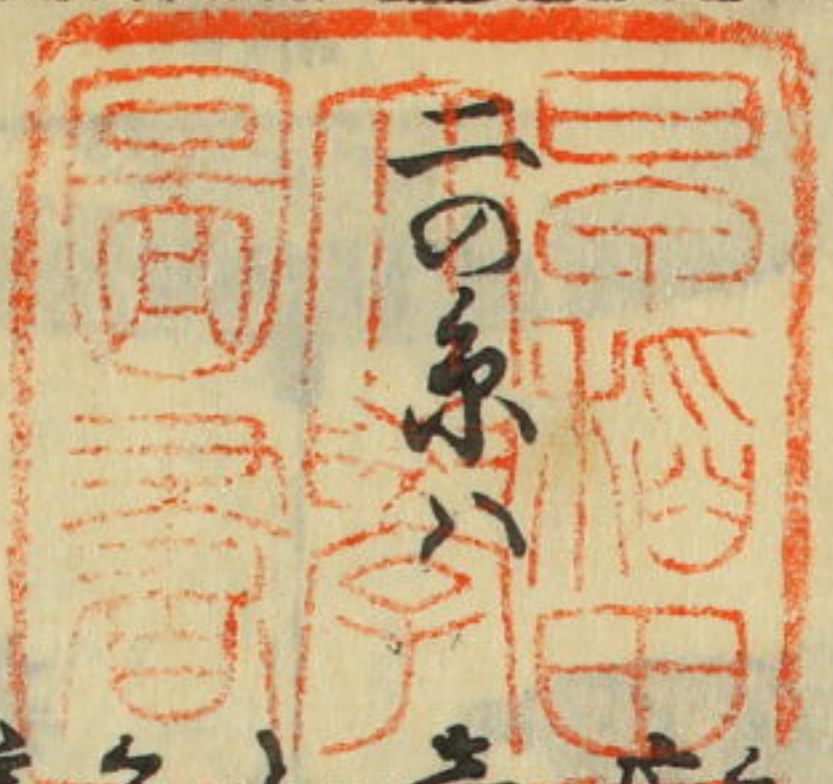 早稲田
大學
圖書
二の糸ハ